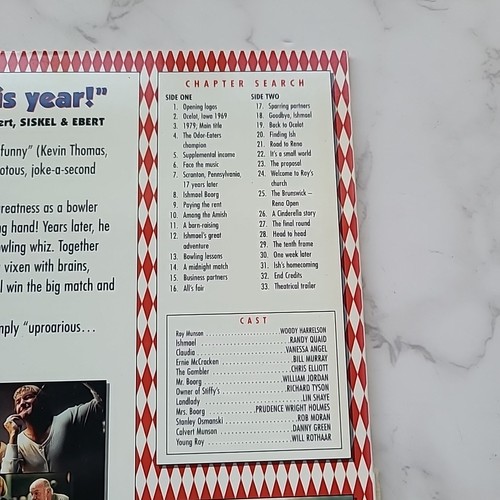 is year!"
ert, SISKEL & EBERT
funny" (Kevin Thomas,
otous, joke-a-second
reatness as a bowler
ng hand! Years later, he
wling whiz. Together
vixen with brains,
l win the big match and
mply "uproarious...
CHAPTER SEARCH
SIDE ONE
1. Opening logos
2. Ocelot, Iowa 1969
3. 1979; Main title
4. The Odor-Eaters
champion
5. Supplemental income
6. Face the music
7. Scranton, Pennsylvania,
17 years later
8. Ishmael Boorg
9. Paying the rent
10. Among the Amish
11. A barn-raising
12. Ishmael's great
adventure
13. Bowling lessons
14. A midnight match
15. Business partners
16. All's fair
SIDE TWO
17. Sparring partners
18. Goodbye, Ishmael
19. Back to Ocelot
20. Finding Ish
21. Road to Reno
22. It's a small world
23. The proposal
24. Welcome to Roy's
church
25. The Brunswick –
Reno Open
26. A Cinderella story
27. The final round
28. Head to head
29. The tenth frame
30. One week later
31. Ish's homecoming
32. End Credits
33. Theatrical trailer
CAST
Roy Munson WOODY HARRELSON
Ishmael RANDY QUAID
Claudia VANESSA ANGEL
Ernie McCracken BILL MURRAY
The Gambler CHRIS ELLIOTT
Mr. Boorg WILLIAM JORDAN
Owner of Stiffy's RICHARD TYSON
Landlady LIN SHAYE
Mrs. Boorg PRUDENCE WRIGHT HOLMES
Stanley Osmanski ROB MORAN
Calvert Munson DANNY GREEN
Young Roy WILL ROTHAAR